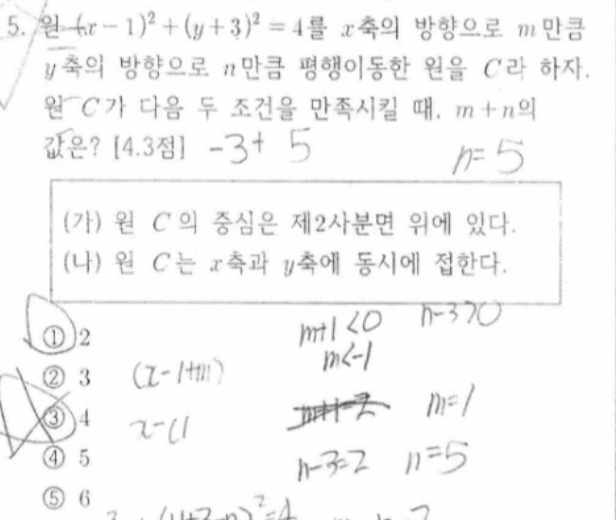 5. 원 (x-1)²+(y+3)²=4를 x축의 방향으로 m만큼
y축의 방향으로 n만큼 평행이동한 원을 C라 하자.
원 C가 다음 두 조건을 만족시킬 때, m+n의
값은? [4.3점] -3+ 5 n=5
(가) 원 C의 중심은 제2사분면 위에 있다.
(나) 원 C는 x축과 y축에 동시에 접한다.
① 2 m+1<0 n-3>0
m<-1
② 3 (x-1+m)
③ 4 m+1=2 m=1
x-(1
④ 5 n-3=2 n=5
⑤ 6
(y+3-n)²=4